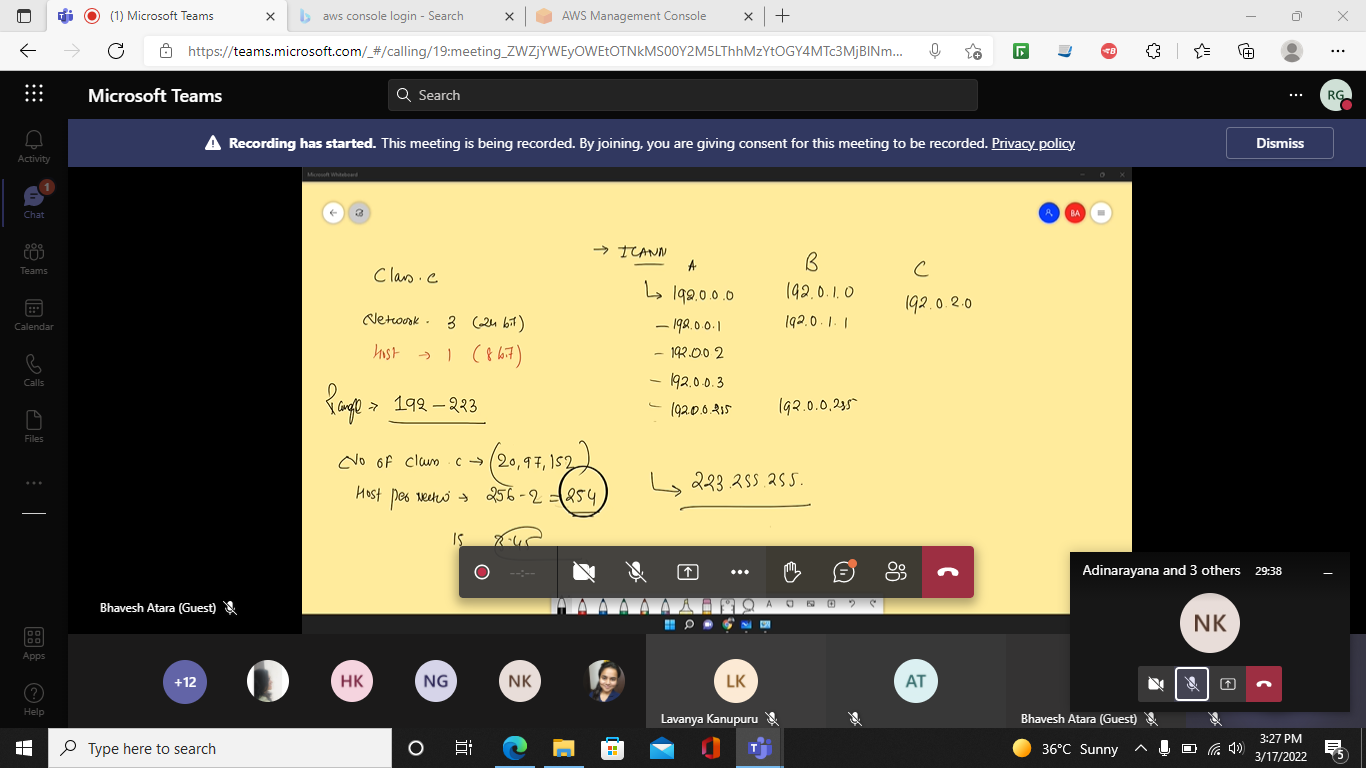 (1) Microsoft Teams
aws console login - Search
AWS Management Console
https://teams.microsoft.com/_#/calling/19:meeting_ZWZjYWEyOWEtOTNkMS00Y2M5LThhMzYtOGY4MTc3MjBlNm...
Microsoft Teams
Search
RG
Recording has started. This meeting is being recorded. By joining, you are giving consent for this meeting to be recorded. Privacy policy
Dismiss
Activity
1
Chat
Teams
Calendar
Calls
Files
Apps
Help
Microsoft Whiteboard
BA
→ ICANN
Class.C
Network. 3 (24 bit)
Host → 1 (8 bit)
Range → 192 – 223
No of class.c → (20,97,152)
256-2 = 254
A
192.0.0.0
- 192.0.0.1
- 192.0.0 2
- 192.0.0.3
- 192.0.0.255
B
192.0.1.0
192.0.1.1
192.0.0.255
C
192.0.2.0
223.255.255.
--:--
Bhavesh Atara (Guest)
Adinarayana and 3 others
29:38
NK
+12
HK
NG
NK
LK
AT
Lavanya Kanupuru
Bhavesh Atara (Guest)
Type here to search
36°C Sunny
3:27 PM
3/17/2022
5